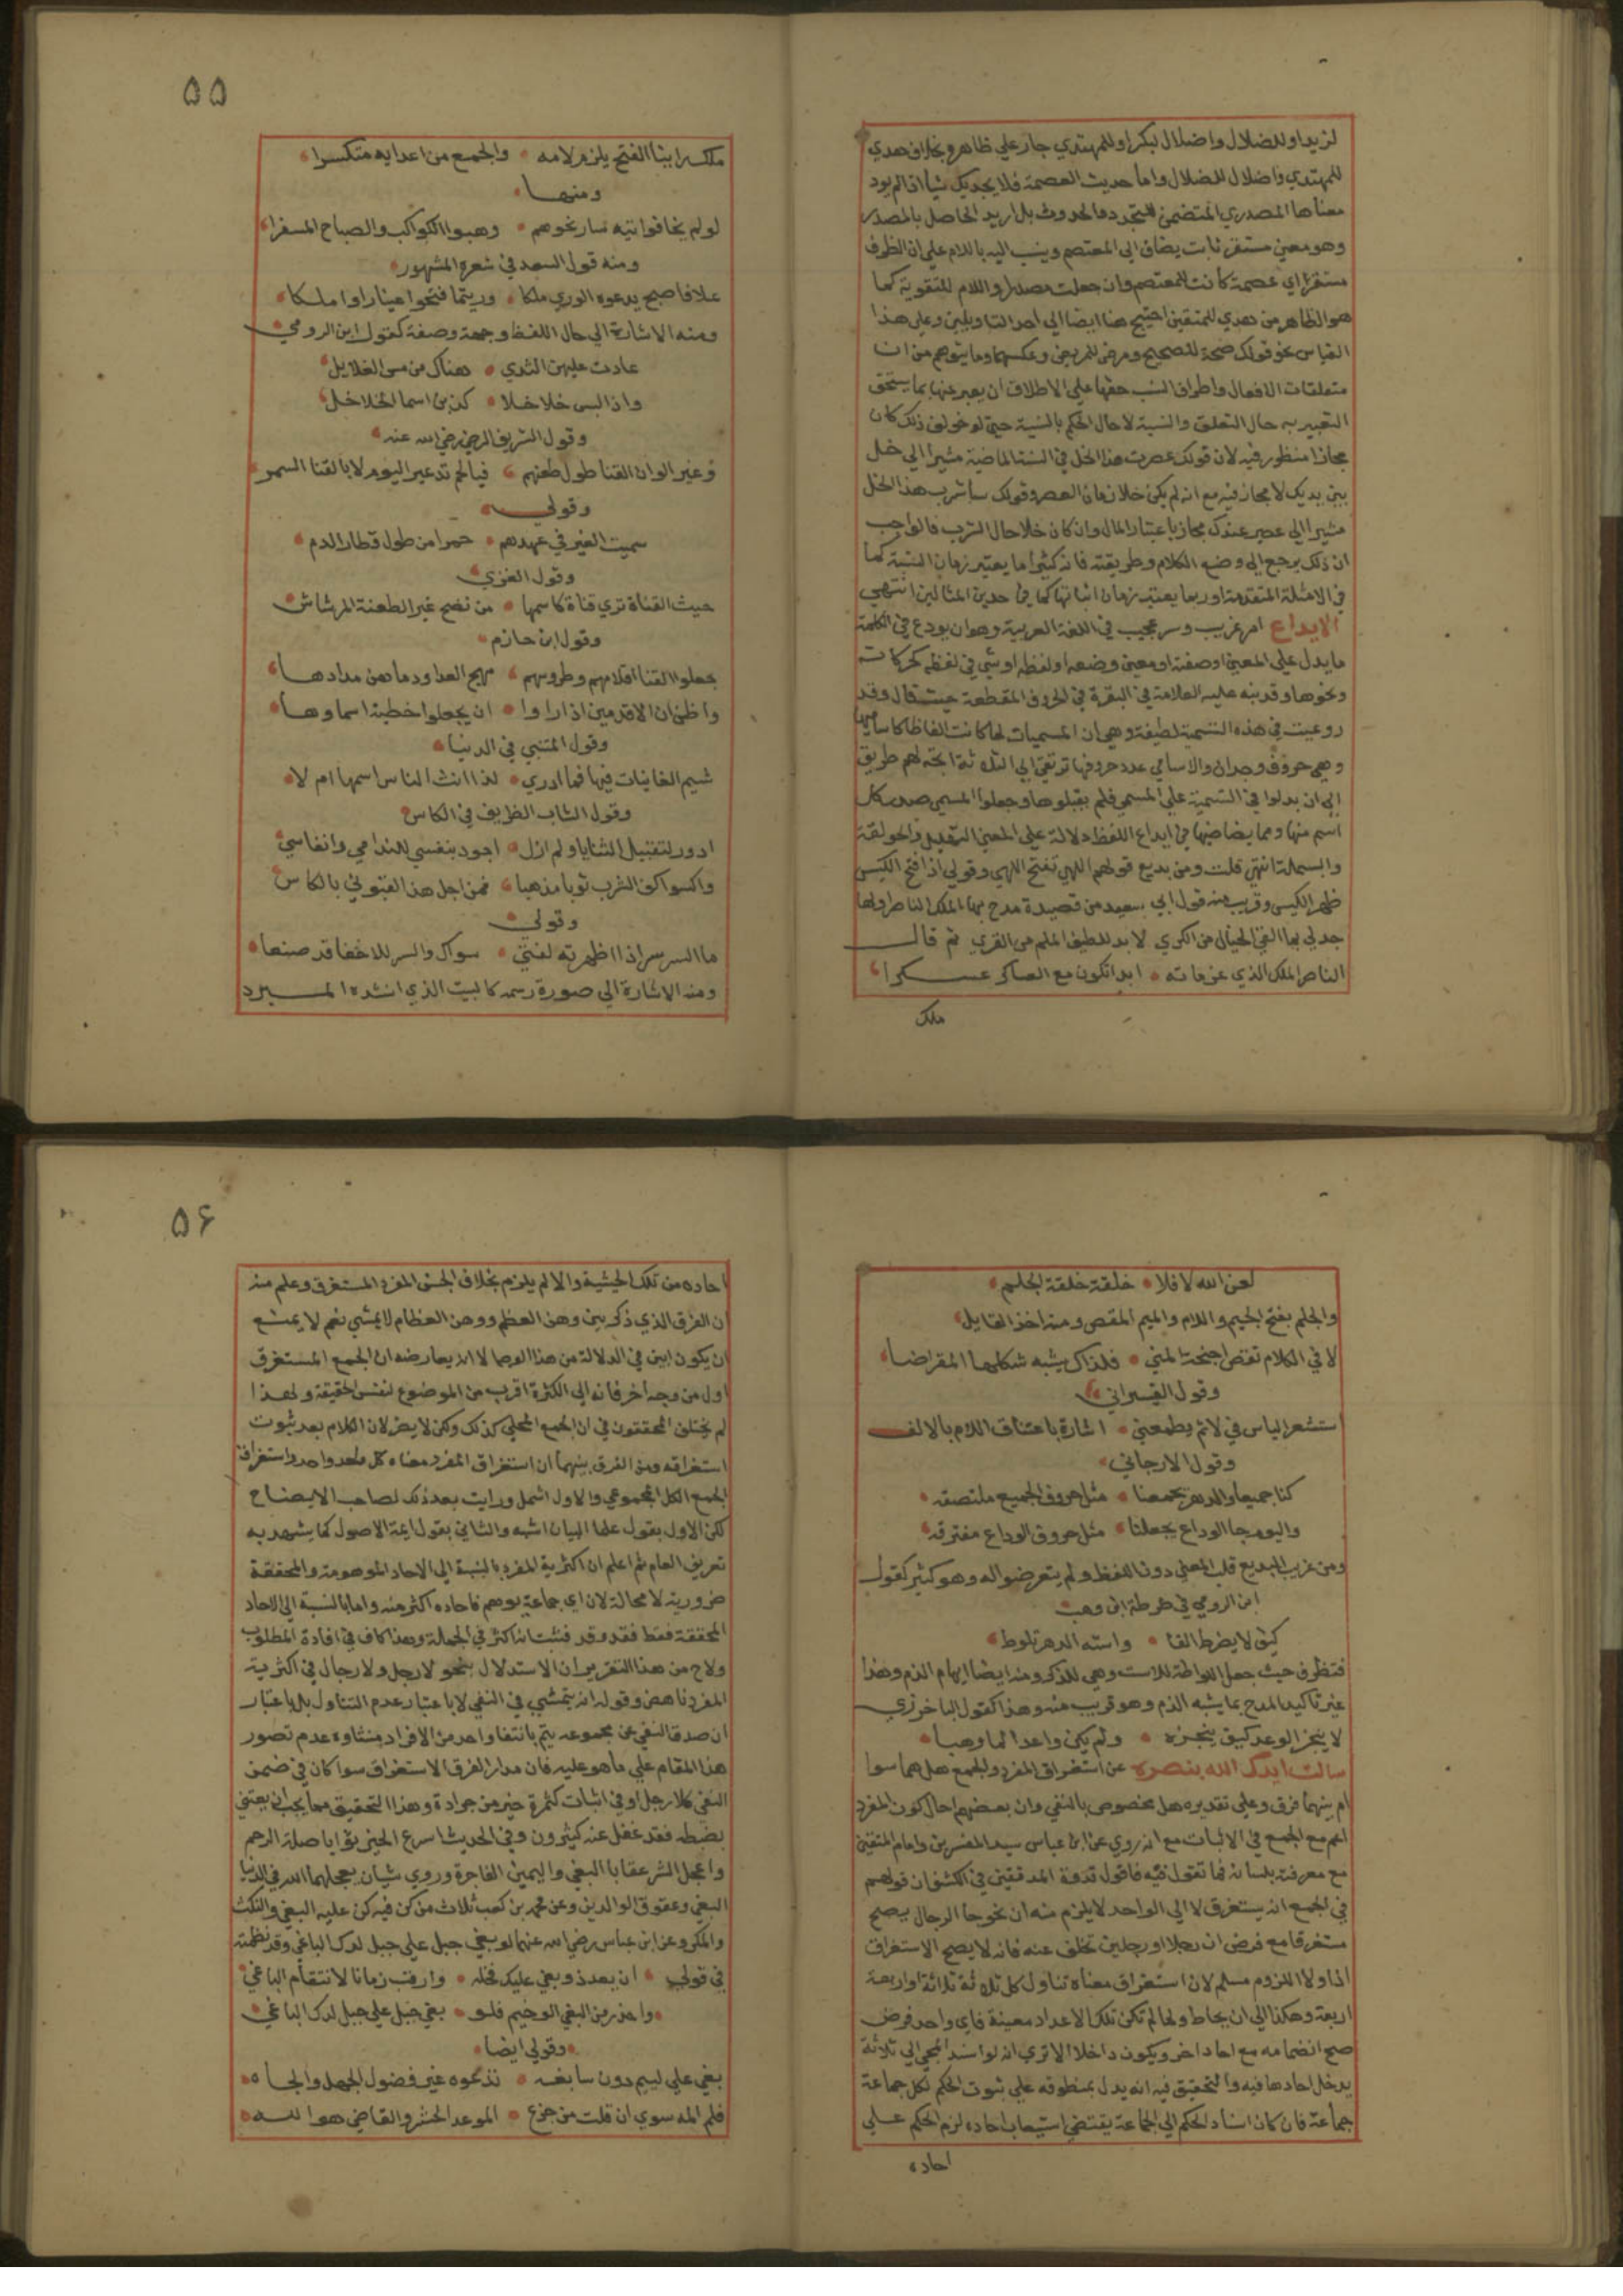 لزيد او للضلال واضلال لبكر او للمهتدي جار علي ظاهره بخلاف هدي
للمهتدي واضلال للضلال واما حديث العصمة فلا يجديك شيأ اذ لم يرد
معناها المصدري المتضمن للتجدد والحدوث بل اريد الحاصل بالمصدر
وهو معني مستقر ثابت يضاف الي المعتصم وينسب اليه باللام علي ان الظرف
مستقر اي عصمة كانت للمعتصم وان جعلت مصدرا واللام للتقوية كما
هو الظاهر من هدي للمتقين احتيج هنا ايضا الي احد التاويلين وعلي هذا
القياس نحو قولك صحة للصحيح ومرض للمريض وعكسهما وما يتوهم من ان
متعلقات الافعال واطراف النسب حقها علي الاطلاق ان يعبر عنها بما يستحق
التعبير به حال التعلق والنسبة لا حال الحكم بالنسبة حتي لو خولف ذلك كان
مجازا منظور فيه لان قولك عصرت هذا الخل في السنة الماضية مشيرا الي خل
بين يديك لا مجاز فيه مع انه لم يكن خلا زمان العصر وقولك ساشرب هذا الخل
مشيرا الي عصير عندك مجاز باعتبار المال وان كان خلا حال الشرب فالواجب
ان ذلك يرجع الي وضع الكلام وطريقته فانه كثيرا ما يعتبر زمان النسبة كما
في الامثلة المتقدمة وربما يعتبر زمان اثباتها كما في هذين المثالين انتهي
الايداع امر غريب وسر عجيب في اللغة العربية وهو ان يودع في الكلمة
ما يدل علي المعني او صفته او معني وضعه او لفظه او شي في لفظه كحركاته
ونحوها وقد نبه عليه العلامة في البقرة في الحروف المقطعة حيث قال وقد
روعيت في هذه التسمية لطيفة وهي ان المسميات لما كانت الفاظا كاساميها
وهي حروف وحدان والاسامي عدد حروفها ترتقي الي الثلاثة اتجه لهم طريق
الي ان يدلوا في التسمية علي المسمي فلم يغفلوها وجعلوا المسمي صدر كل
اسم منها ومما يضاهيها في ايداع اللفظ دلالة علي المعني التهليل والحولقة
والبسملة انتهي قلت ومن بديع قولهم اللهي تفتح اللهي وقولي اذا فتح الكيس
ظهر الكيس وقريب منه قول ابي سعيد من قصيدة مدح بها الملك الناصر اولها
جد لي بما القي الخيال من الكري لا بد للطيف الملم من القري ثم قال
الناصر الملك الذي عزماته ابدا تكون مع العساكر عسكرا
ملك
۵۵
ملك يرا بينا الفتح يلزم لامه والجمع من اعدايه متكسرا
ومنها
لو لم يخافوا تيه سار نحوهم وهبوا الكواكب والصباح المسفرا
ومنه قول السعد في شعره المشهور
علا فاصبح يدعوه الوري ملكا وريثما فتحوا عينا راوا ملكا
ومنه الاشارة الي حال اللفظ وجهة وصفة كقول ابن الرومي
عادت عليهن الثدي هناك من مس الغلايل
واذا لبس خلاخلا كذبن اسما الخلاخل
وقول الشريف الرضي رضي الله عنه
وغير الوان القنا طول طعنهم فيالحم تدعي اليوم لا بالقنا السمر
وقولي
سميت الغير في عهدهم حمرا من طول قطار الدم
وقول الغزي
حيث القناة تري قناة كاسمها من نضح غير الطعنة المرشاش
وقول ابن حازم
جعلوا القنا اقلامهم وطروسهم مهج العدا ودماهن مدادها
واظن ان الاقدمين اذا راوا ان يجعلوا خطية اسماوها
وقول المتنبي في الدنيا
شيم الغانيات فيها فما ادري لذا انث الناس اسمها ام لا
وقول الشاب الظريف في الكاس
ادور لتقبيل الثنايا ولم ازل اجود بنفسي للندامي وانفاسي
واكسوا كف الشرب ثوبا مذهبا فمن اجل هذا لقبوني بالكاس
وقولي
ما السر سر اذا اظهرته لفتي سواك والسر للاخفا قد صنعا
ومنه الاشارة الي صورة رسمه كالبيت الذي انشده المبرد
لعن الله لا فلا خلقة خلقة الجلم
والجلم بفتح الجيم واللام والميم المقص ومنه اخذ القايل
لا في الكلام تقص اجنحة المني فلذاك يشبه شكلها المقراضا
وقول القيسراني
استشعر الياس في لا ثم يطمعني اشارة باعتناق اللام بالالف
وقول الارجاني
كنا جميعا والدهر يجمعنا مثل حروف الجميع ملتصقه
واليوم جا الوداع يجعلنا مثل حروف الوداع مفترقه
ومن غريب البديع قلب المعني دون اللفظ ولم يتعرضوا له وهو كثير كقول
ابن الرومي في ضرطة ابن وهب
كيف لا يضرط القا واسته الدهر تلوط
فتظرف حيث جعل اللواطة للاست وهي للذكر ومنه ايضا ايهام الذم وهذا
غير تاكيد المدح بما يشبه الذم وهو قريب منه وهذا كقول الباخرزي
لا ينجز الوعد كيف ينجزه ولم يكن واعدا لما وهبا
سالت ايدك الله بنصره عن استغراق المفرد والجمع هل هما سوا
ام بينهما فرق وعلي تقديره هل مخصوص بالنفي وان بعضهم احال كون المفرد
اعم مع الجمع في الاثبات مع انه روي عن ابن عباس سيد المفسرين وامام المتقين
مع معرفته بلسانه فما تقول فيه فاقول قدوة المدققين في الكشف ان قولهم
في الجمع انه يستغرق لا الي الواحد لا يلزم منه ان نحو جا الرجال يصح
مستغرقا مع فرض ان رجلا او رجلين تخلف عنه فانه لا يصح الاستغراق
اذا ولا اللزوم مسلم لان استغراق معناه تناول كل ثلاثة ثلاثة او اربعة
اربعة وهكذا الي ان يحاط ولما لم تكن تلك الاعداد معينة فاي واحد فرض
صح انضمامه مع احاد اخر ويكون داخلا الا تري انه لو اسند المجي الي ثلاثة
يدخل احادها فيه والتحقيق فيه انه يدل بمنطوقه علي ثبوت الحكم لكل جماعة
جماعة فان كان اسناد الحكم الي الجماعة يقتضي استيعاب احاده لزم الحكم علي
احاده
۵۶
احاده من تلك الحيثية والا لم يلزم بخلاف الجنس المفرد المستغرق وعلم منه
ان الفرق الذي ذكر بين وهن العظم ووهن العظام لا يمشي نعم لا يمتنع
ان يكون ابين في الدلالة من هذا الوجه الا انه يعارضه ان الجمع المستغرق
اول من وجه اخر فانه الي الكثرة اقرب من الموضوع لنفس الحقيقة ولهذا
لم يختلف المحققون في ان الجمع المحلي كذلك ولكن لا يضر لان الكلام بعد ثبوت
استغراقه ومن الفرق بينهما ان استغراق المفرد معناه كل واحد واحد واستغراق
الجمع الكل المجموعي والاول اشمل ورايت بعد ذلك لصاحب الايضاح
لكن الاول بقول علما البيان اشبه والثاني بقول ايمة الاصول كما يشهد به
تعريف العام ثم اعلم ان اكثرية المفرد بالنسبة الي الاحاد الموهومة والمحققة
ضرورية لا محالة لان اي جماعة يوهم فاحاده اكثر منه واما بالنسبة الي الاحاد
المحققة فقط فقد وقد فثبت انه اكثر في الجملة وهذا كاف في افادة المطلوب
ولاح من هذا التقرير ان الاستدلال بنحو لا رجل ولا رجال في اكثرية
المفرد ناهض وقوله انه يتمشي في النفي لا باعتبار عدم التناول بل باعتبار
ان صدق النفي عن مجموعه يتم بانتفا واحد من الافراد منشاوه عدم تصور
هذا المقام علي ما هو عليه فان مدار الفرق الاستغراق سوا كان في ضمن
النفي كلا رجل او في اثبات كتمرة خير من جرادة وهذا التحقيق مما يجب ان يعتني
بضبطه فقد غفل عنه كثيرون وفي الحديث اسرع الخير ثوابا صلة الرحم
واعجل الشر عقابا البغي واليمين الفاجرة وروي شيان يعجلهما الله في الدنيا
البغي وعقوق الوالدين وعن محمد بن كعب ثلاث من كن فيه كن عليه البغي والنكث
والمكر وعن ابن عباس رضي الله عنهما لو بغي جبل علي جبل لدك الباغي وقد نظمته
في قولي ان يعد ذو بغي عليك فخله وارقب زمانا لانتقام الباغي
واحذر من البغي الوخيم فلو بغي جبل علي جبل لدك الباغي
وقولي ايضا
بغي علي لييم دون سابغه تذكوه غير فضول الجهل والجاه
فلم اله سوي ان قلت من جزع الموعد الحشر والقاضي هو الله